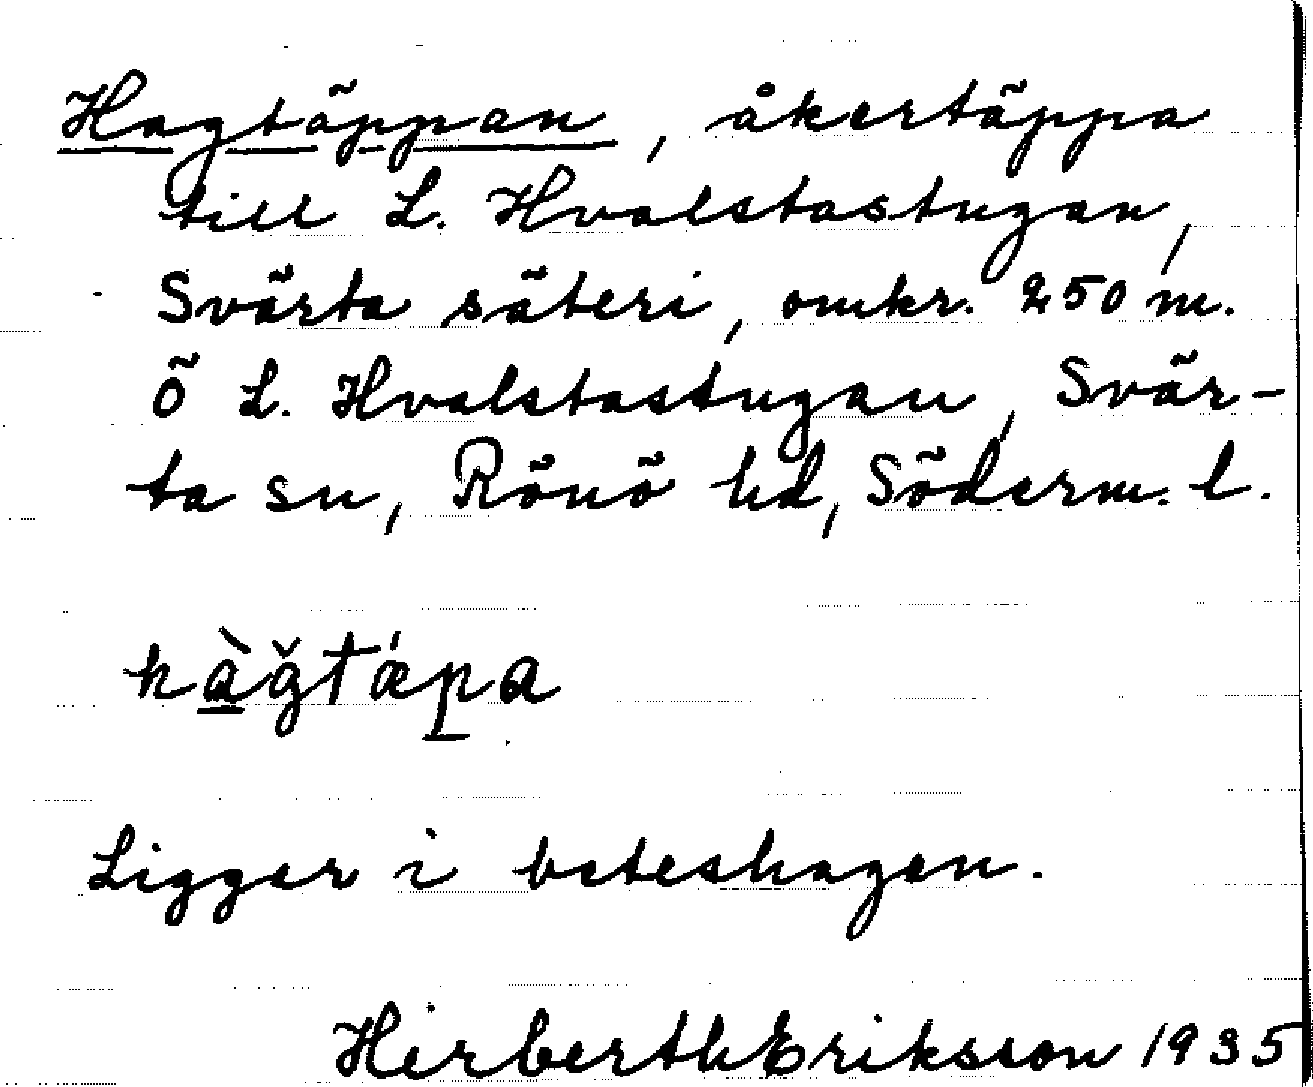 Hagtäppan, åkertäppa
till L. Hvalstastugan,
Svärta säteri, omkr. 250 m.
Ö L. Hvalstastugan, Svär-
ta sn, Rönö hd, Söderm. l.
hàğtǽpa
Ligger i beteshagen.
Herberth Eriksson 1935